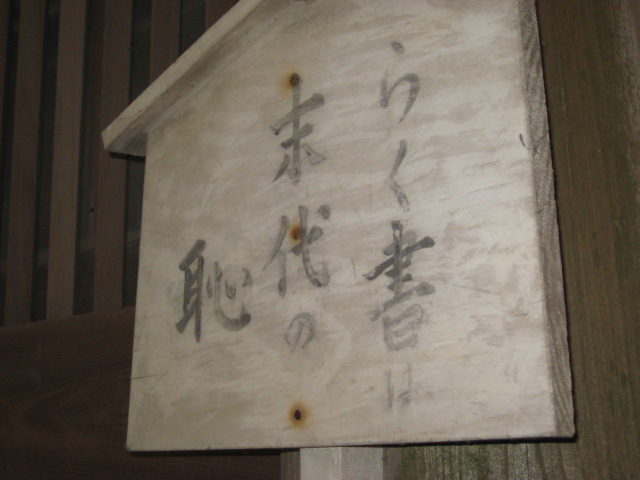 らく書は
末代の
恥